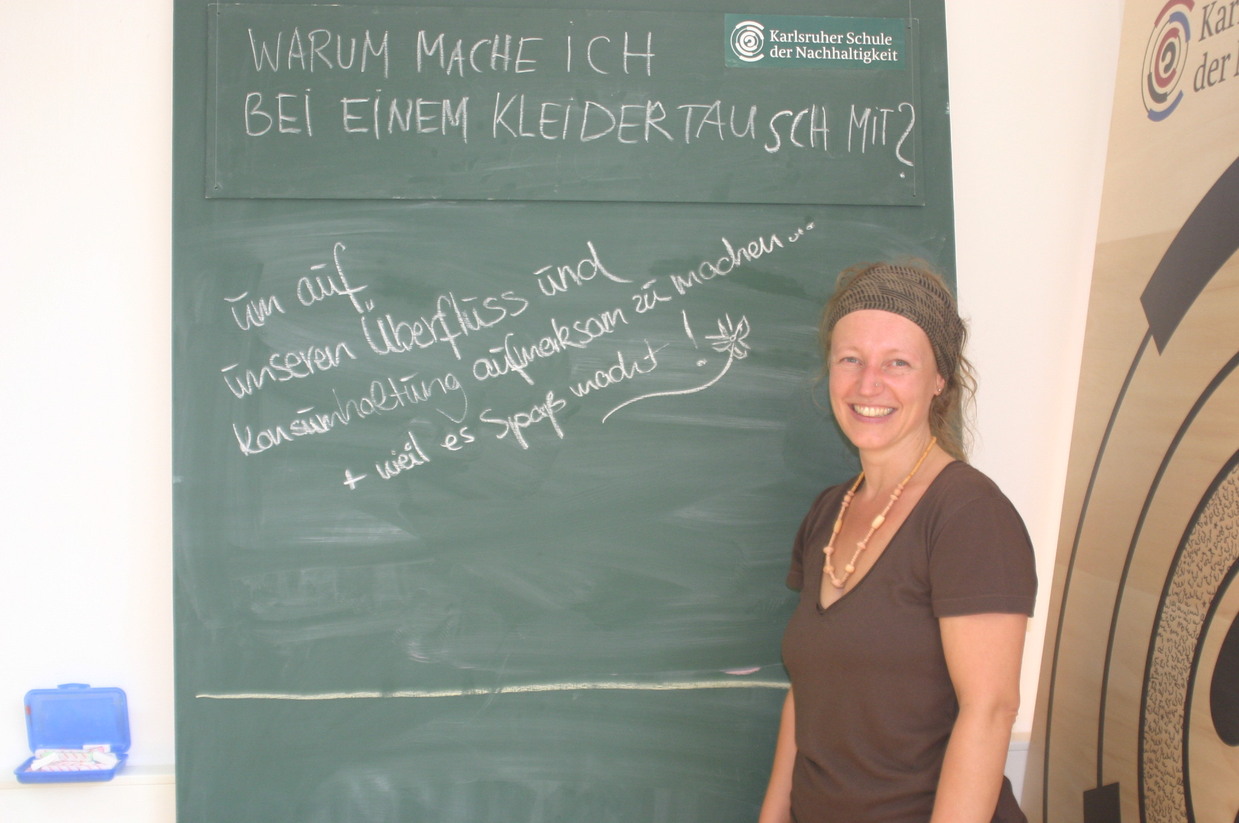 WARUM MACHE ICH
BEI EINEM KLEIDERTAUSCH MIT?
Karlsruher Schule
der Nachhaltigkeit
um auf
unseren Überfluss und
Konsumhaltung aufmerksam zu machen...
+ weil es Spaß macht !